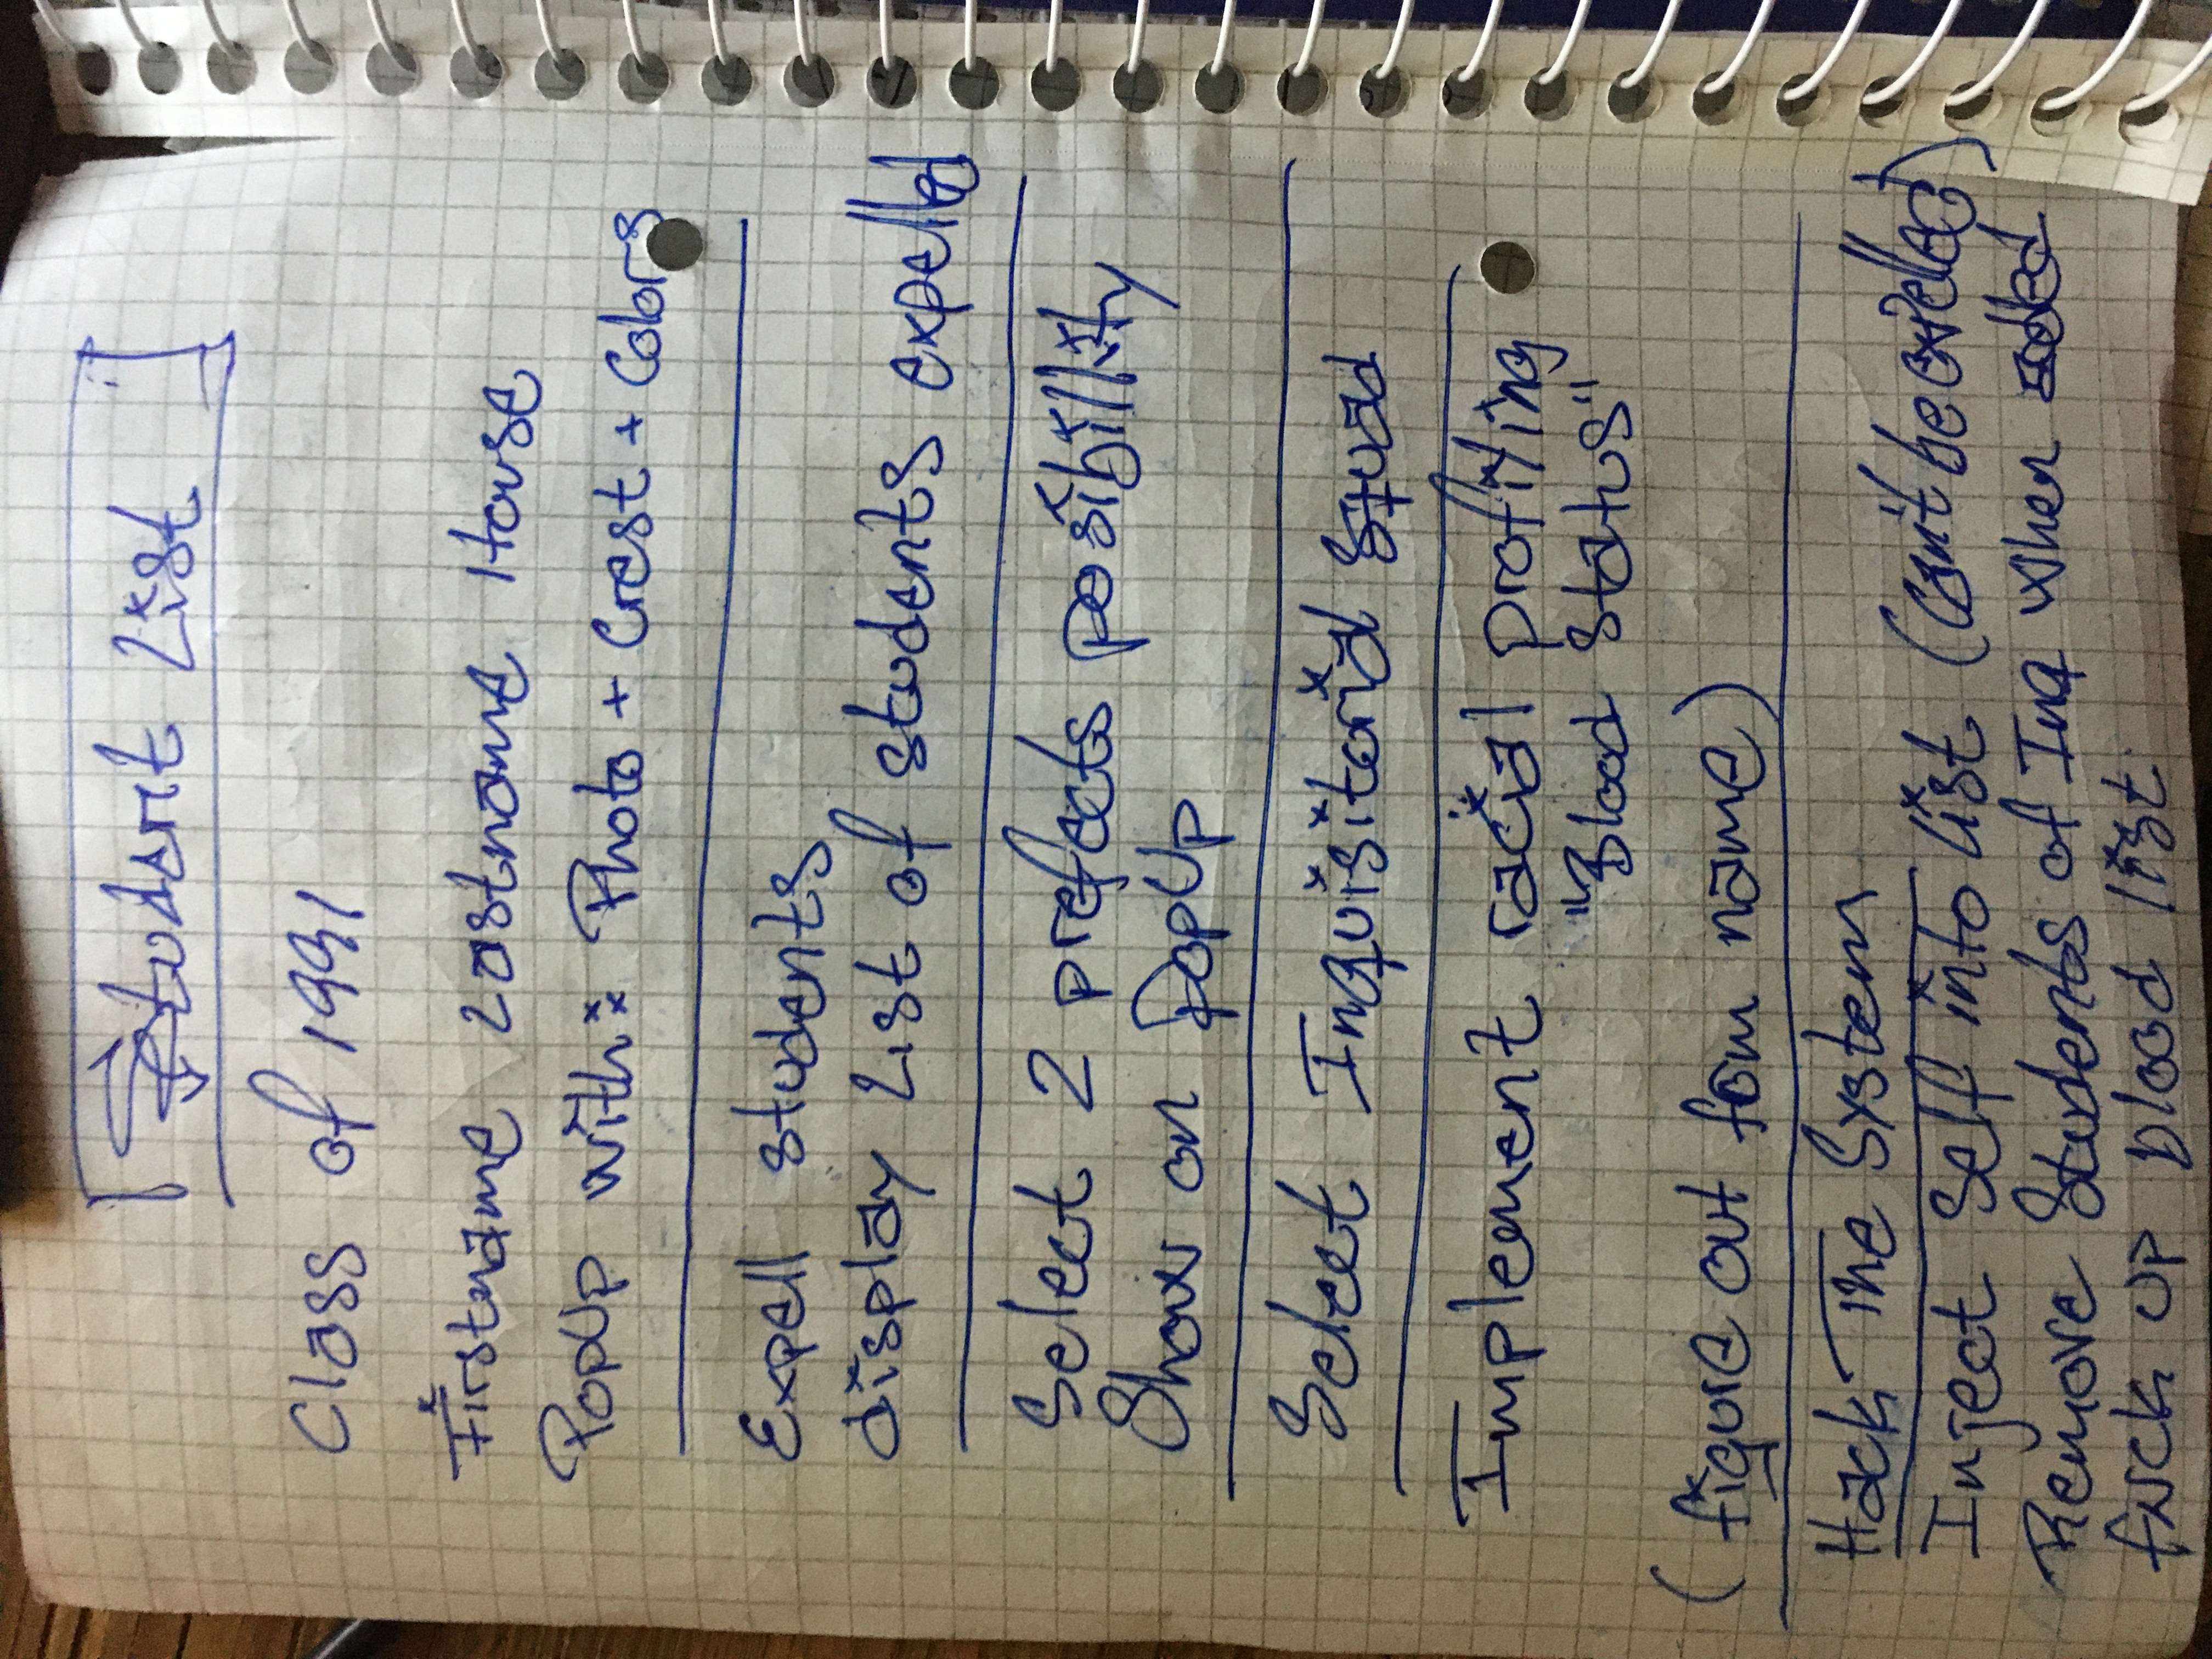 Student List
Class of 1991
Firstname Lastname House
PopUp with: Photo + Crest + Colors
Expell students
display List of students expelled
Select 2 prefects posibillity
Show on PopUp
Select Inquisitorial Squad
Implement racial profiling
"Blood status"
(figure out from name)
Hack The System
Inject Self into list (can't be expelled)
Remove Students of Inq when added
fuck up blood list